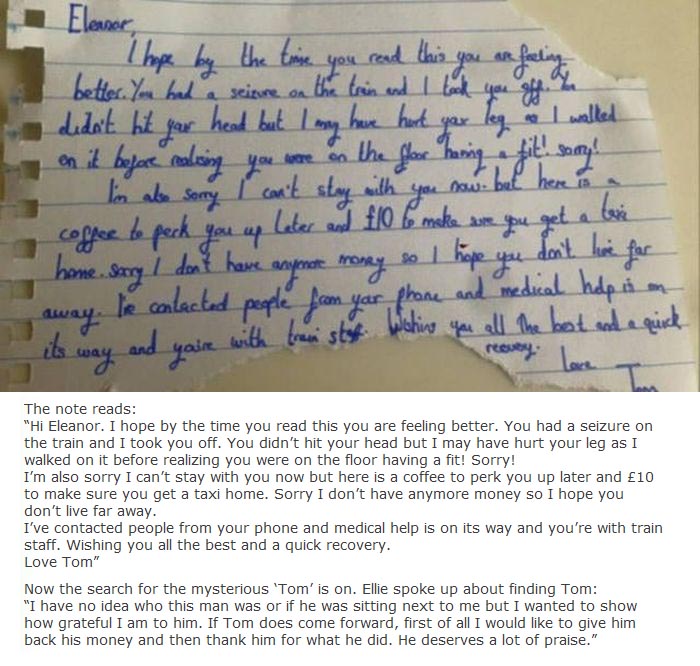 Eleanor,
I hope by the time you read this you are feeling
better. You had a seizure on the train and I took you off. You
didn't hit your head but I may have hurt your leg as I walked
on it before realising you were on the floor having a fit! Sorry!
I'm also sorry I can't stay with you now. but here is a
coffee to perk you up later and £10 to make sure you get a taxi
home. Sorry I don't have anymore money so I hope you don't live far
away. I've contacted people from your phone and medical help is on
its way and you're with train staff. Wishing you all the best and a quick
recovery.
Love Tom
The note reads:
“Hi Eleanor. I hope by the time you read this you are feeling better. You had a seizure on
the train and I took you off. You didn’t hit your head but I may have hurt your leg as I
walked on it before realizing you were on the floor having a fit! Sorry!
I’m also sorry I can’t stay with you now but here is a coffee to perk you up later and £10
to make sure you get a taxi home. Sorry I don’t have anymore money so I hope you
don’t live far away.
I’ve contacted people from your phone and medical help is on its way and you’re with train
staff. Wishing you all the best and a quick recovery.
Love Tom”
Now the search for the mysterious ‘Tom’ is on. Ellie spoke up about finding Tom:
“I have no idea who this man was or if he was sitting next to me but I wanted to show
how grateful I am to him. If Tom does come forward, first of all I would like to give him
back his money and then thank him for what he did. He deserves a lot of praise.”